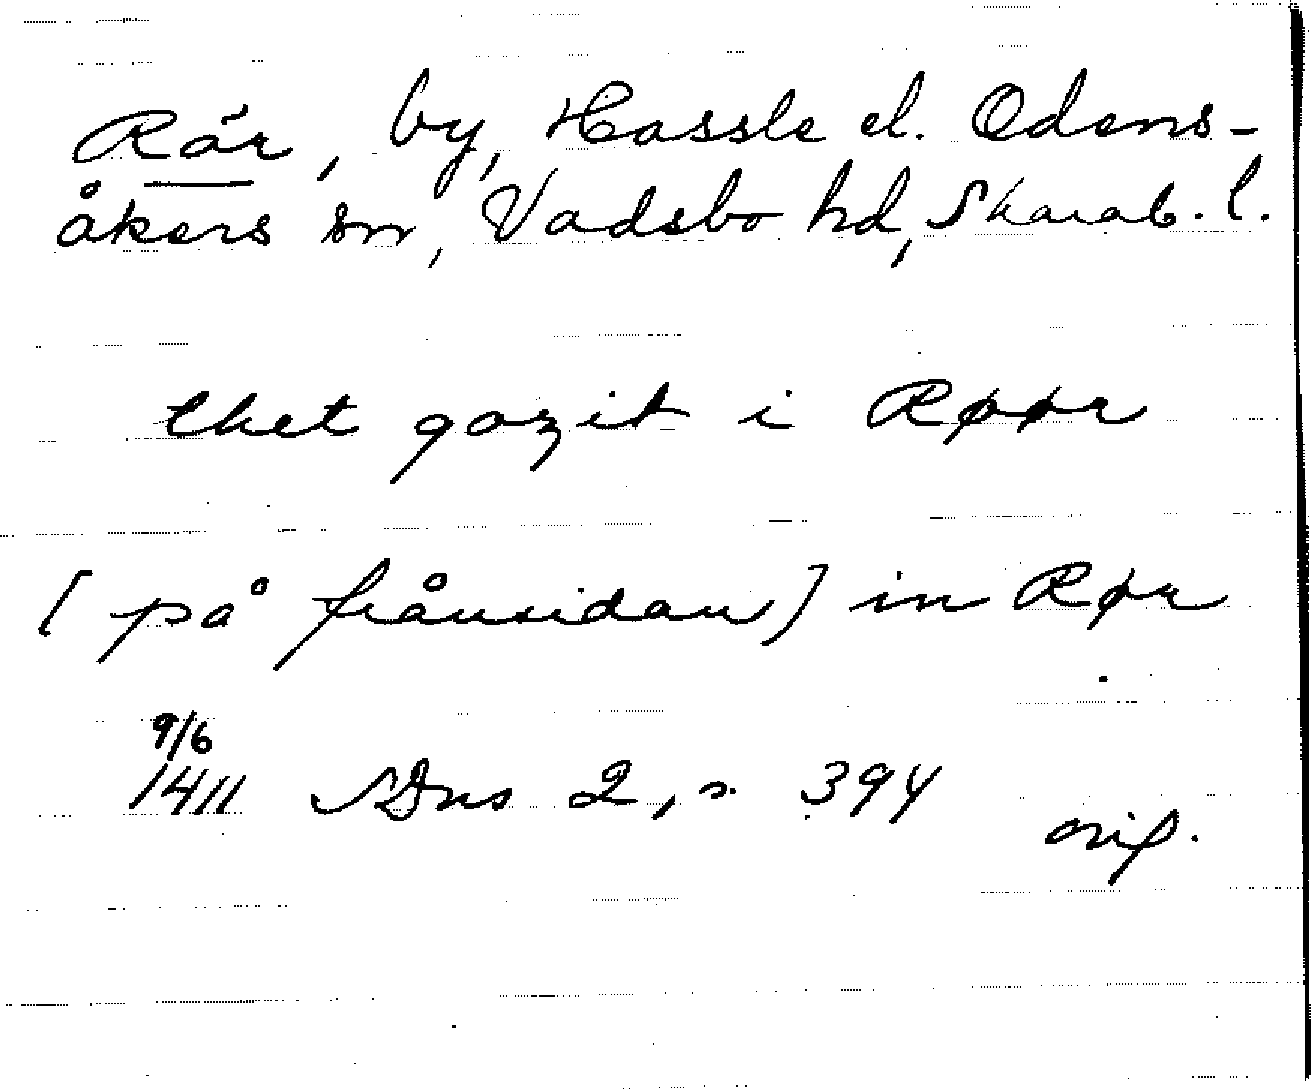 Rör, by, Hassle el. Odens-
åkers sn, Vadsbo hd, Skarab. l.
thet gozit i Røør
[på frånsidan] in Rør
9/6
1411 SDns 2, s. 394
orig.